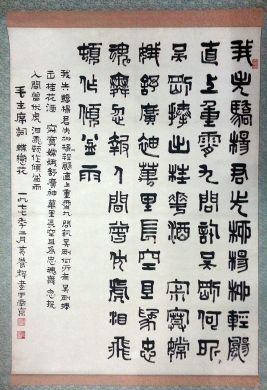 我失驕楊君失柳楊柳輕颺
直上重霄九問訊吳剛何所有
吳剛捧出桂花酒 寂寞嫦
娥舒廣袖萬里長空且為忠
魂舞忽報人間曾伏虎淚飛
頓作傾盆雨
我失驕楊君失柳楊柳輕颺直上重霄九問訊吳剛何所有吳剛捧
出桂花酒 寂寞嫦娥舒廣袖萬里長空且為忠魂舞忽報
人間曾伏虎 淚飛頓作傾盆雨
毛主席詞 蝶戀花 一九七七年二月書于南京